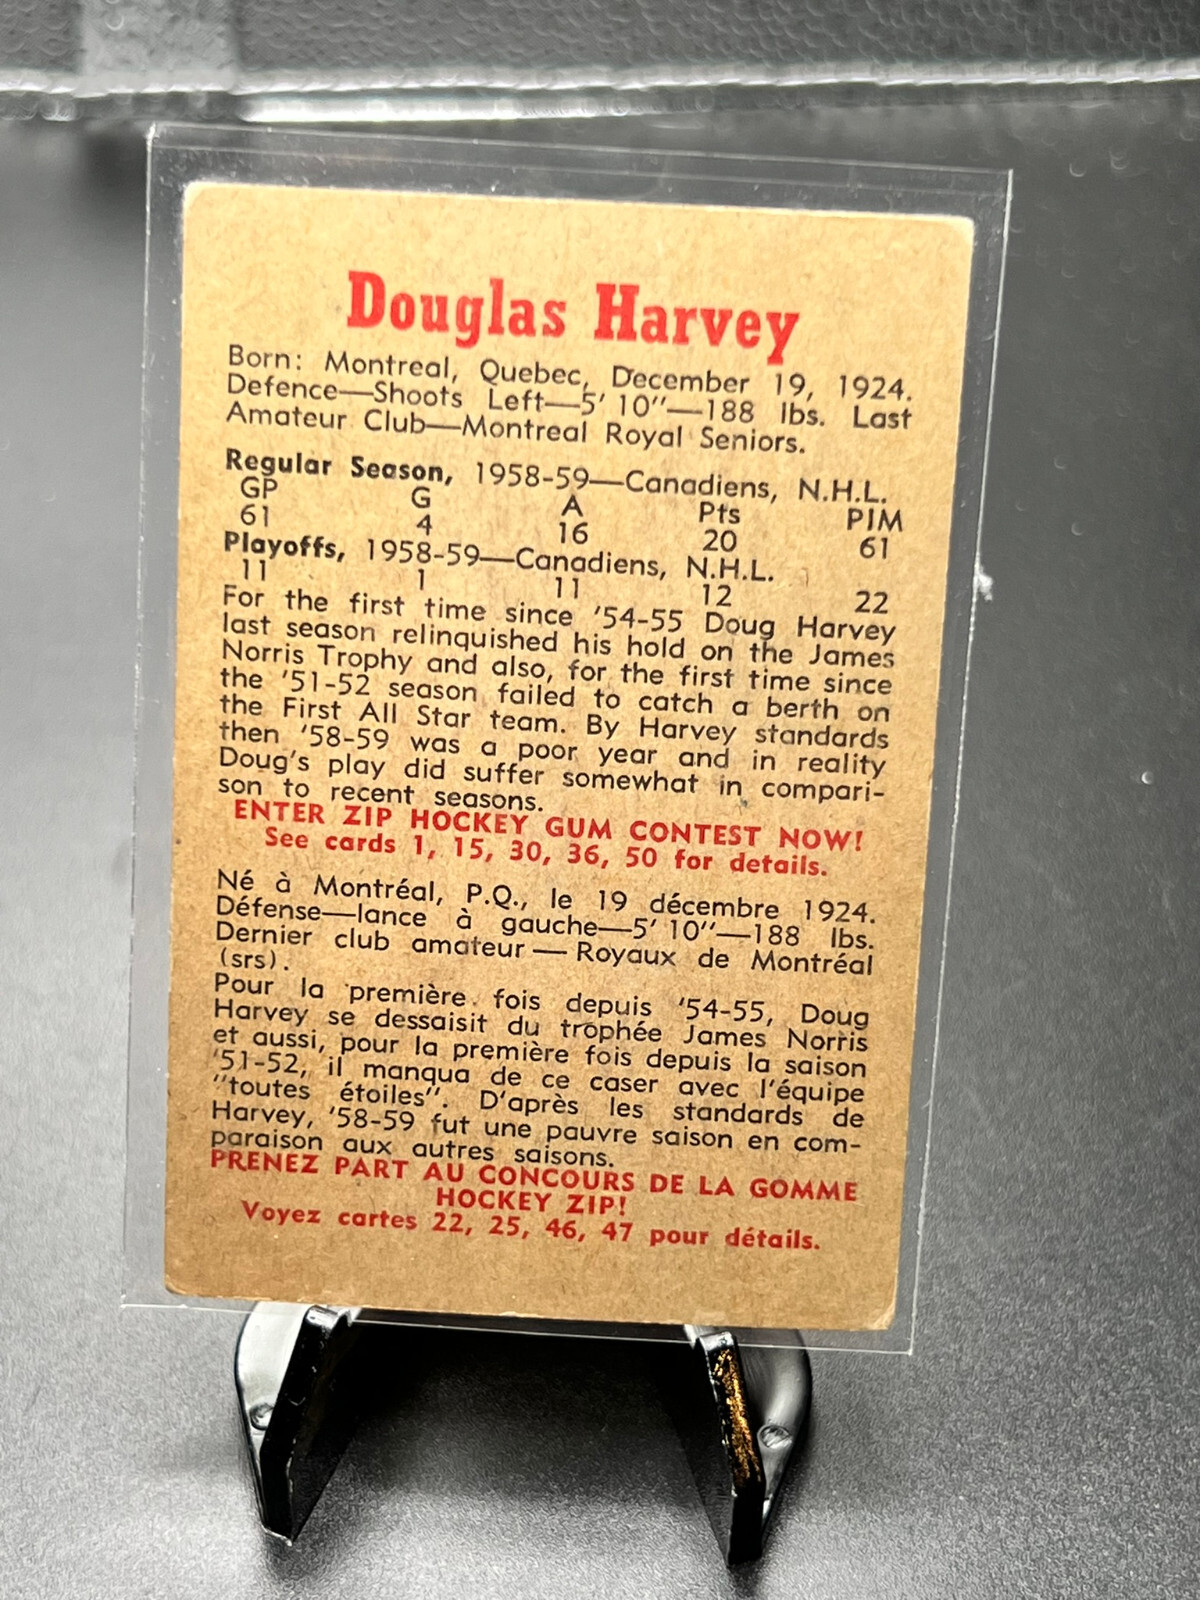 Douglas Harvey
Born: Montreal, Quebec, December 19, 1924.
Defence—Shoots Left—5' 10"—188 lbs. Last
Amateur Club—Montreal Royal Seniors.
Regular Season, 1958-59—Canadiens, N.H.L.
GP G A Pts PIM
61 4 16 20 61
Playoffs, 1958-59—Canadiens, N.H.L.
11 1 11 12 22
For the first time since '54-55 Doug Harvey
last season relinquished his hold on the James
Norris Trophy and also, for the first time since
the '51-52 season failed to catch a berth on
the First All Star team. By Harvey standards
then '58-59 was a poor year and in reality
Doug's play did suffer somewhat in compari-
son to recent seasons.
ENTER ZIP HOCKEY GUM CONTEST NOW!
See cards 1, 15, 30, 36, 50 for details.
Né à Montréal, P.Q., le 19 décembre 1924.
Défense—lance à gauche—5' 10"—188 lbs.
Dernier club amateur — Royaux de Montréal
(srs).
Pour la première fois depuis '54-55, Doug
Harvey se dessaisit du trophée James Norris
et aussi, pour la première fois depuis la saison
'51-52, il manqua de ce caser avec l'équipe
"toutes étoiles". D'après les standards de
Harvey, '58-59 fut une pauvre saison en com-
paraison aux autres saisons.
PRENEZ PART AU CONCOURS DE LA GOMME
HOCKEY ZIP!
Voyez cartes 22, 25, 46, 47 pour détails.